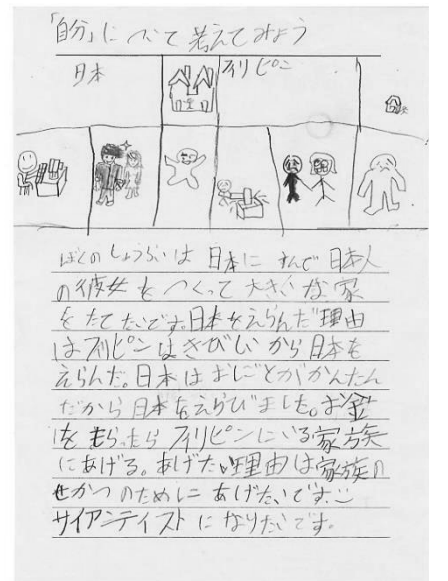 「自分」について考えてみよう
日本
フィリピン
ぼくのしょうらいは日本にすんで日本人
の彼女をつくって大きな家
をたてたいです。日本をえらんだ理由
はフィリピンはきびしいから日本を
えらんだ。日本はおしごとがかんたん
だから日本をえらびました。お金
をもらったらフィリピンにいる家族
にあげる。あげたい理由は家族の
せかつのためにあげたいです。
サイアンティストになりたいです。